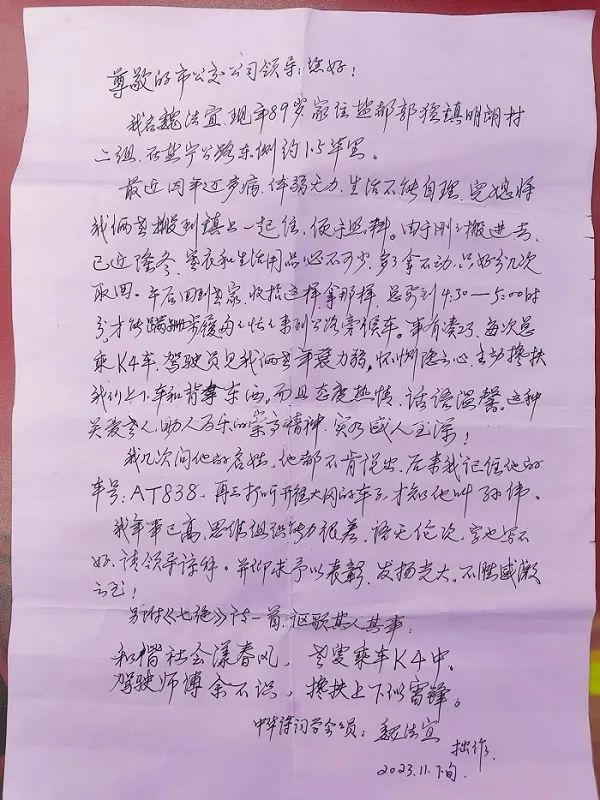 尊敬的市公交公司领导：您好！
我名魏法宜，现年89岁，家住盐都郭猛镇明朗村
二组，在盐宁公路东侧约1.5华里。
最近因年迈多病，体弱无力，生活不能自理，儿媳将
我俩老搬到镇上一起住，便于照料。由于刚刚搬进去，
已近隆冬，寒衣和生活用品必不可少，多了拿不动，只好分几次
取回。午后回到老家，收拾这样，拿那样，总要到4:30—5:00时
分，才能蹒跚步履匆匆忙忙来到公路旁候车。事有凑巧，每次总
乘K4车，驾驶员见我俩老年衰力弱，怀恻隐之心，主动搀扶
我们上下车和背拿东西，而且态度热情，话语温馨。这种
关爱老人，助人为乐的崇高精神，实乃感人至深！
我几次问他的名姓，他都不肯说出，后来我记住他的
车号：AT838，再三打听开往大冈的车子，才知他叫孙伟。
我年事已高，思维组织能力很差，语无伦次，字也写不
好，请领导谅解。并仰求予以表彰，发扬光大。不胜感激
之至！
另附《七绝》诗一首，讴歌其人其事：
和谐社会漾春风，老叟乘车K4中。
驾驶师傅余不识，搀扶上下似雷锋。
中华诗词学会会员：魏法宜
拙作
2023.11.下旬